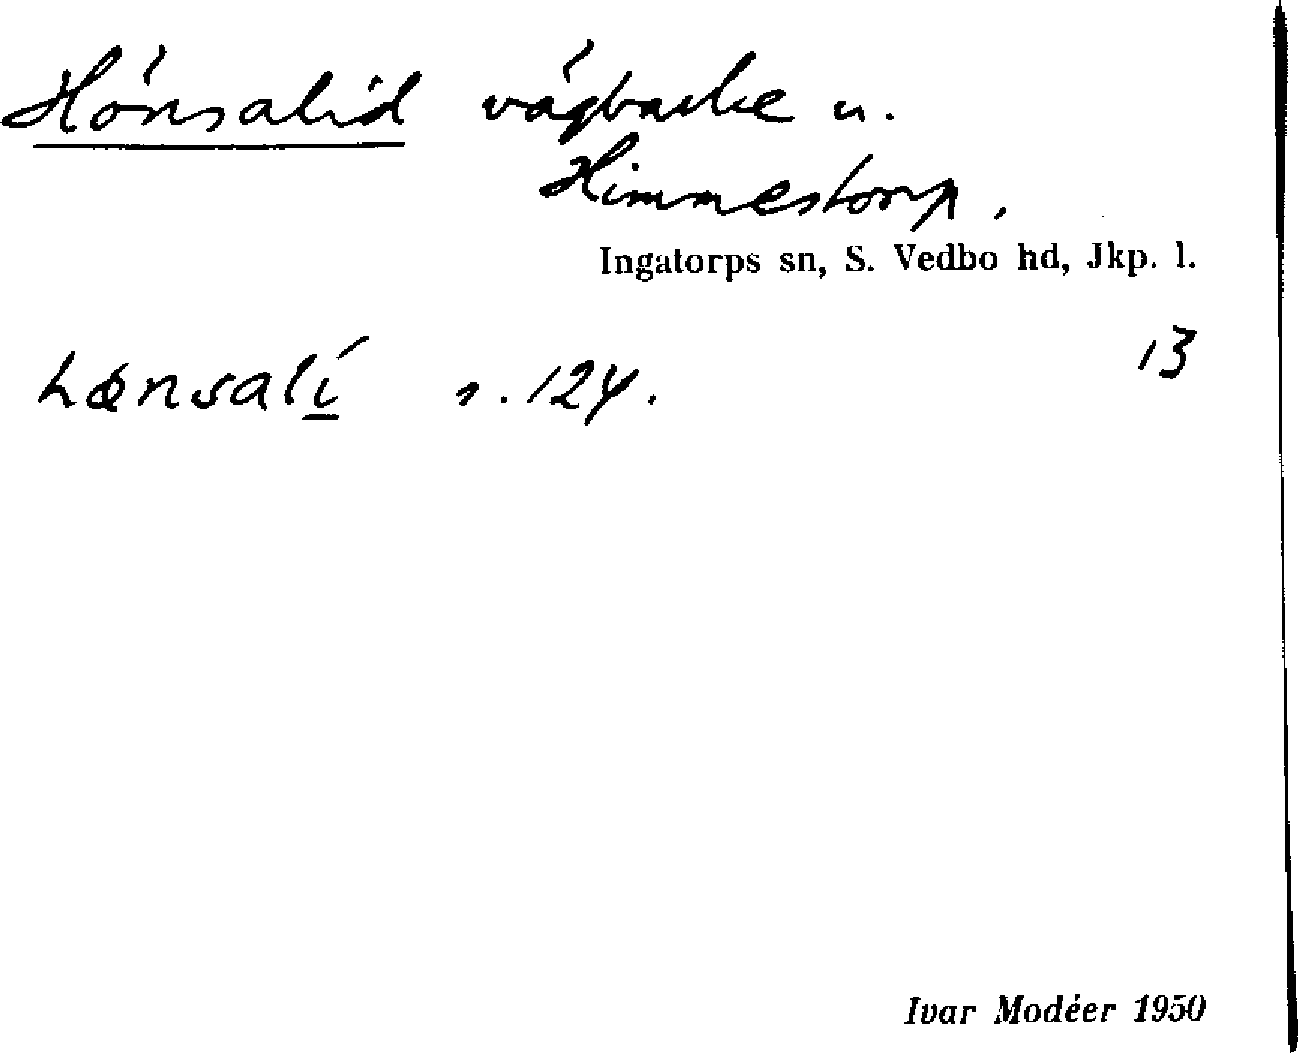 Hönsalid vägbacke u.
Himmestorp.
Ingatorps sn, S. Vedbo hd, Jkp. l.
13
hønsalí s. 124.
Ivar Modéer 1950